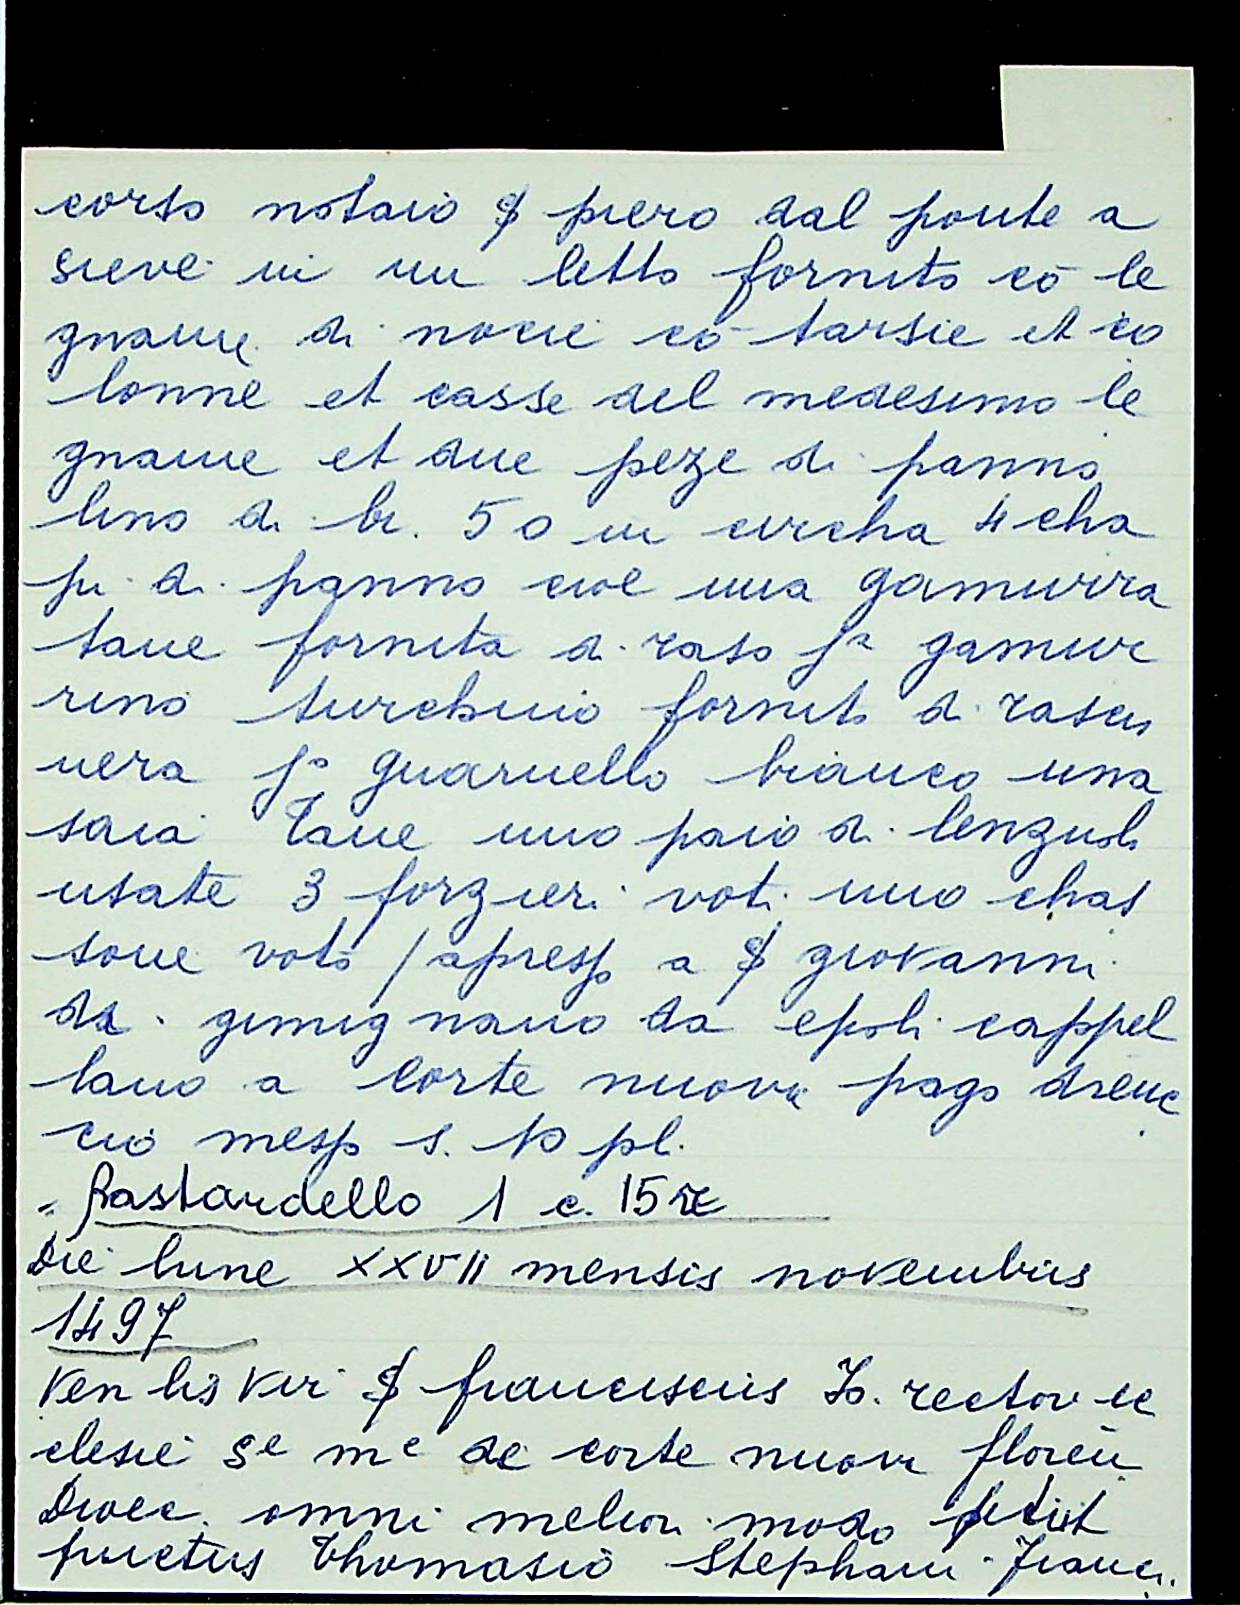 corso notaio § piero dal ponte a
sieve in un letto fornito cō le
gname di nocie cō tarsie et co
lonne et casse del medesimo le
gname et due peze di panno
lino di br. 50 in circha 4 cha
pi di panno cioè una gamurra
tane fornita di raso pª gamur
rino turchino fornito di
nera pº guarnello bianco una
saia tane uno paio di lenzuoli
usate 3 forzieri voti uno chas
sone voto / a § giovanni
da gimignano da epoli cappel
lano a corte nuova pago
s. 10 pl.
Bastardello 1 c. 15
Die lune XXVII mensis novembris
1497
Ven lis vir § franciscus Jo. rector ec
clesie Se me de corte nuova floren
Dioec. omni melior modo
Thomasio Stephani